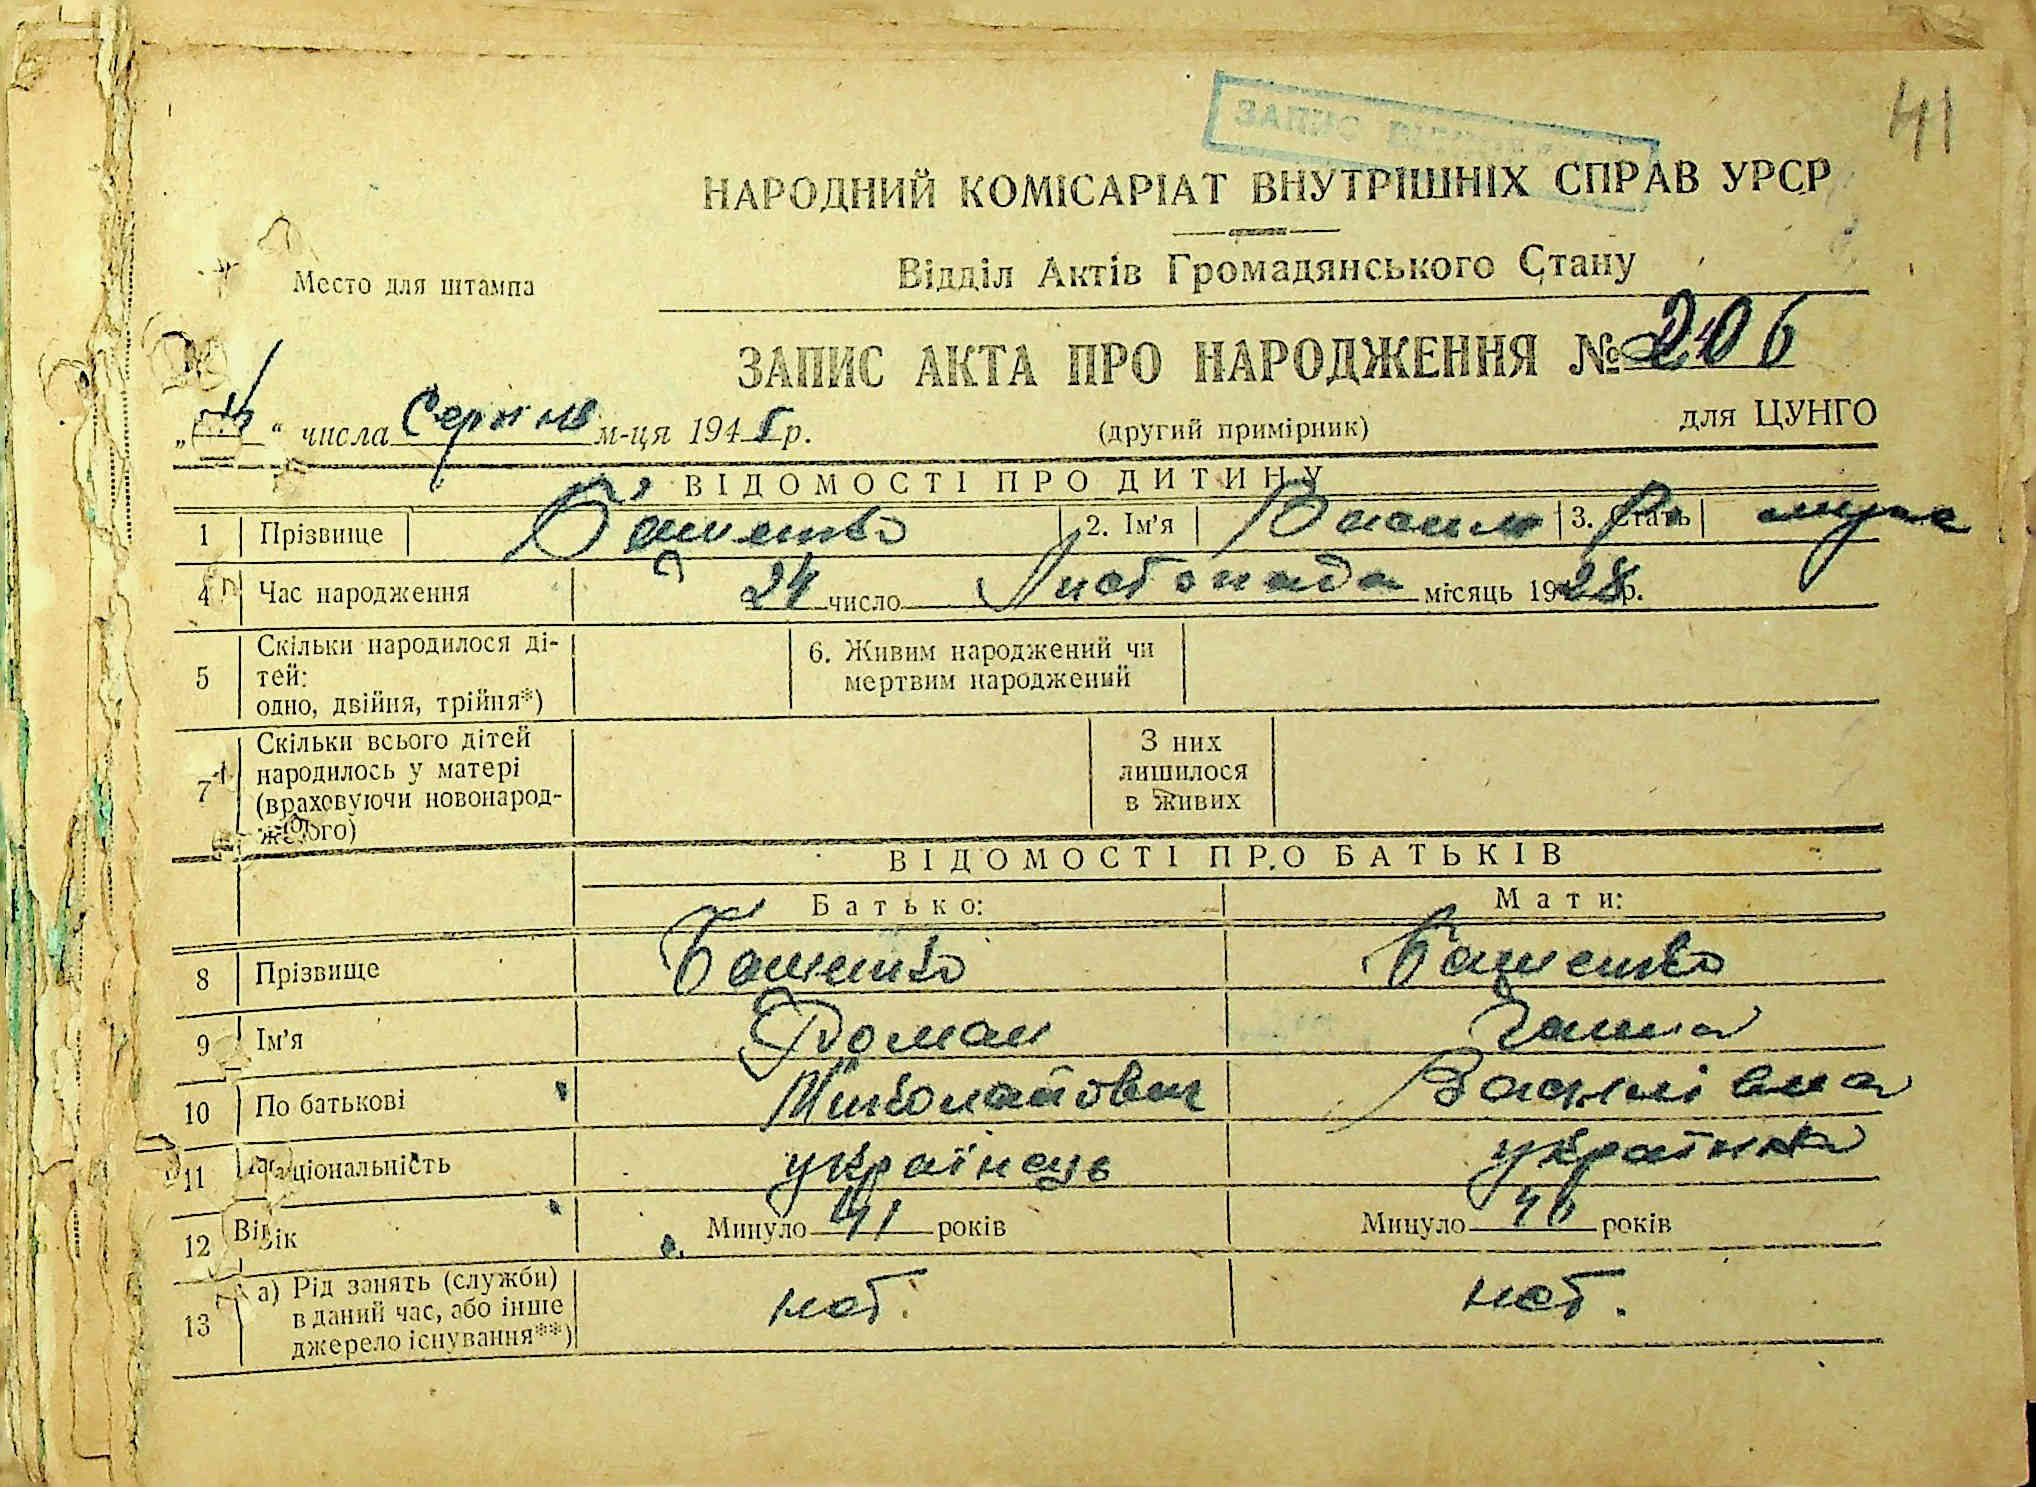 41
ЗАПИС
НАРОДНИЙ КОМІСАРІАТ ВНУТРІШНІХ СПРАВ УРСР
Место для штампа
Відділ Актів Громадянського Стану
ЗАПИС АКТА ПРО НАРОДЖЕННЯ № 206
„ “ числа Серпня м-ця 1945 р. (другий примірник) для ЦУНГО
ВІДОМОСТІ ПРО ДИТИНУ
1 Прізвище Бащенко 2. Ім’я Василь Ро 3. Стать муж
4 Час народження 24 число Листопада місяць 1928 р.
5 Скільки народилося ді-
тей:
одно, двійня, трійня*)
6. Живим народжений чи
мертвим народжений
7 Скільки всього дітей
народилось у матері
(враховуючи новонарод-
женого)
З них
лишилося
в живих
ВІДОМОСТІ ПРО БАТЬКІВ
Батько: Мати:
8 Прізвище Бащенко Бащенко
9 Ім’я Роман Ганна
10 По батькові Миколайович Василівна
11 Національність українець українка
12 Вік Минуло 41 років Минуло 46 років
13 а) Рід занять (служби)
в даний час, або інше
джерело існування**)
нет. нет.